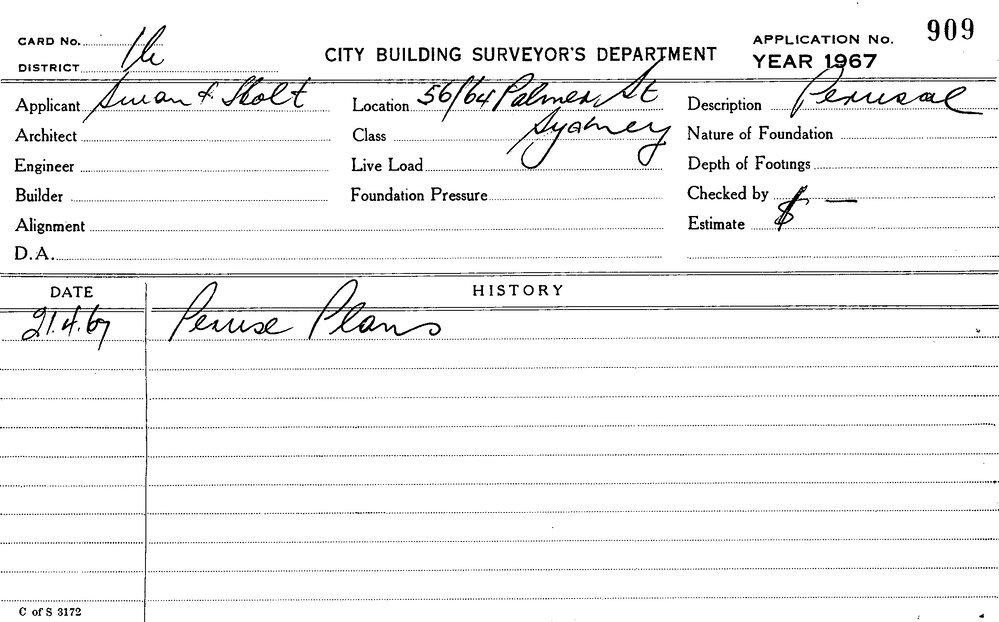 CARD No.
DISTRICT
CITY BUILDING SURVEYOR'S DEPARTMENT
APPLICATION No. 909
YEAR 1967
Applicant Swan & Stolt Location 56/64 Palmer St Description Perusal
Architect Class Sydney Nature of Foundation
Engineer Live Load Depth of Footings
Builder Foundation Pressure Checked by
Alignment Estimate $ —
D.A.
DATE HISTORY
21.4.67 Peruse Plans
C of S 3172